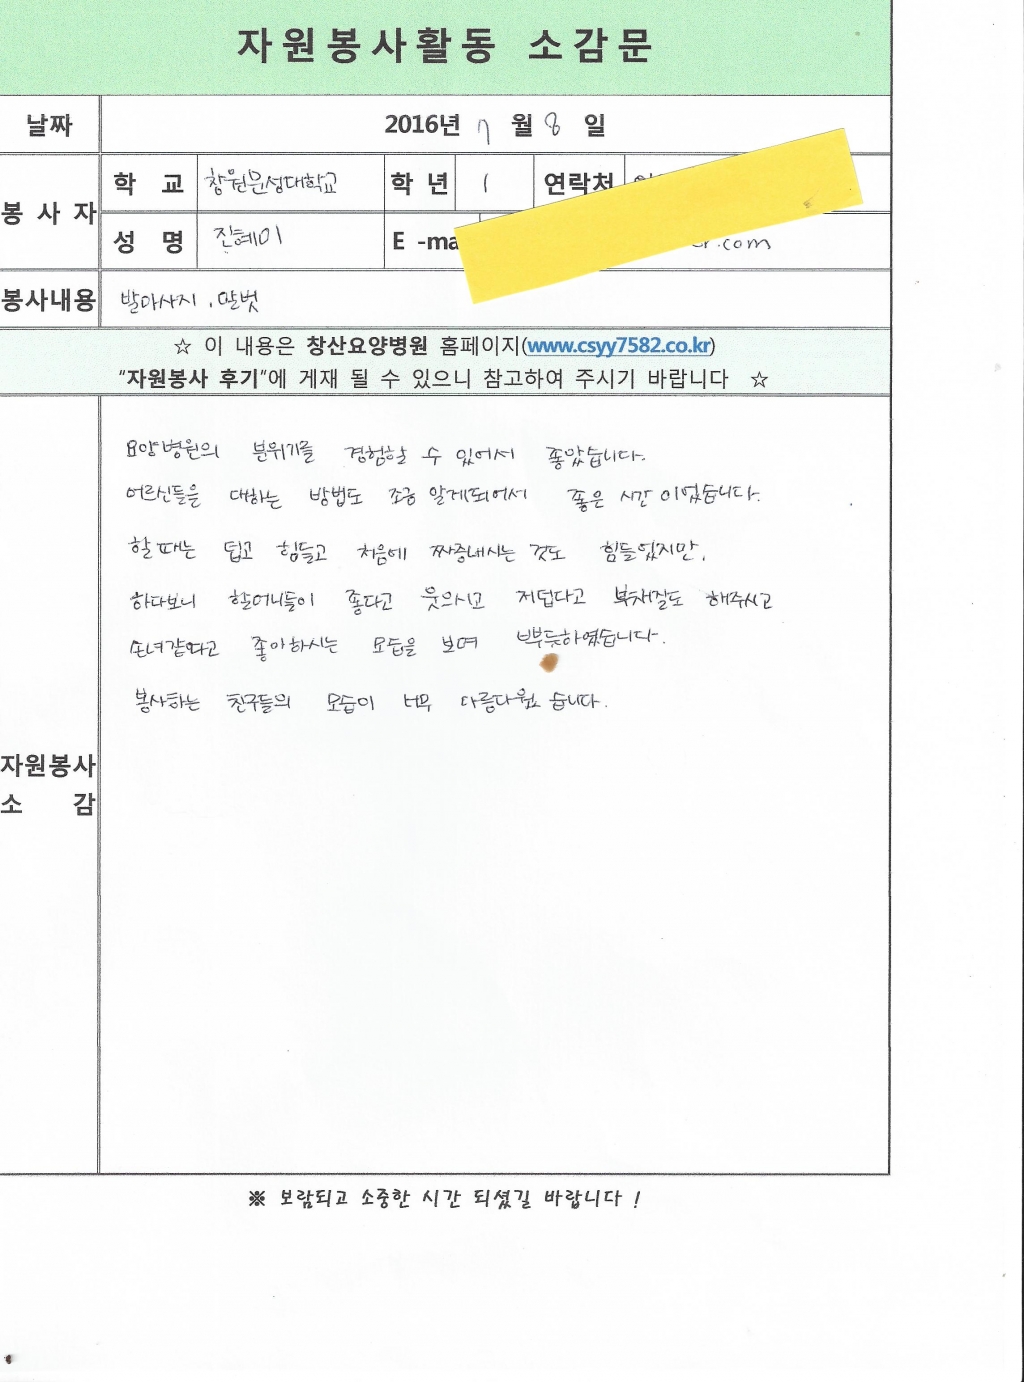 자원봉사활동 소감문
날짜 2016년 7 월 8 일
봉 사 자
학 교 창원문성대학교 학 년 1 연락처
성 명 진혜이 E -ma .com
봉사내용 발마사지, 말벗
☆ 이 내용은 창산요양병원 홈페이지(www.csyy7582.co.kr)
"자원봉사 후기"에 게재 될 수 있으니 참고하여 주시기 바랍니다 ☆
요양병원의 분위기를 경험할 수 있어서 좋았습니다.
어르신들을 대하는 방법도 조금 알게되어서 좋은 시간이었습니다.
할때는 덥고 힘들고 처음에 짜증내시는 것도 힘들었지만,
하다보니 할머니들이 좋다고 웃으시고 저덥다고 부채질도 해주시고
손녀같다고 좋아하시는 모습을 보며 뿌듯하였습니다.
봉사하는 친구들의 모습이 너무 아름다웠습니다.
자원봉사
소 감
※ 보람되고 소중한 시간 되셨길 바랍니다 !